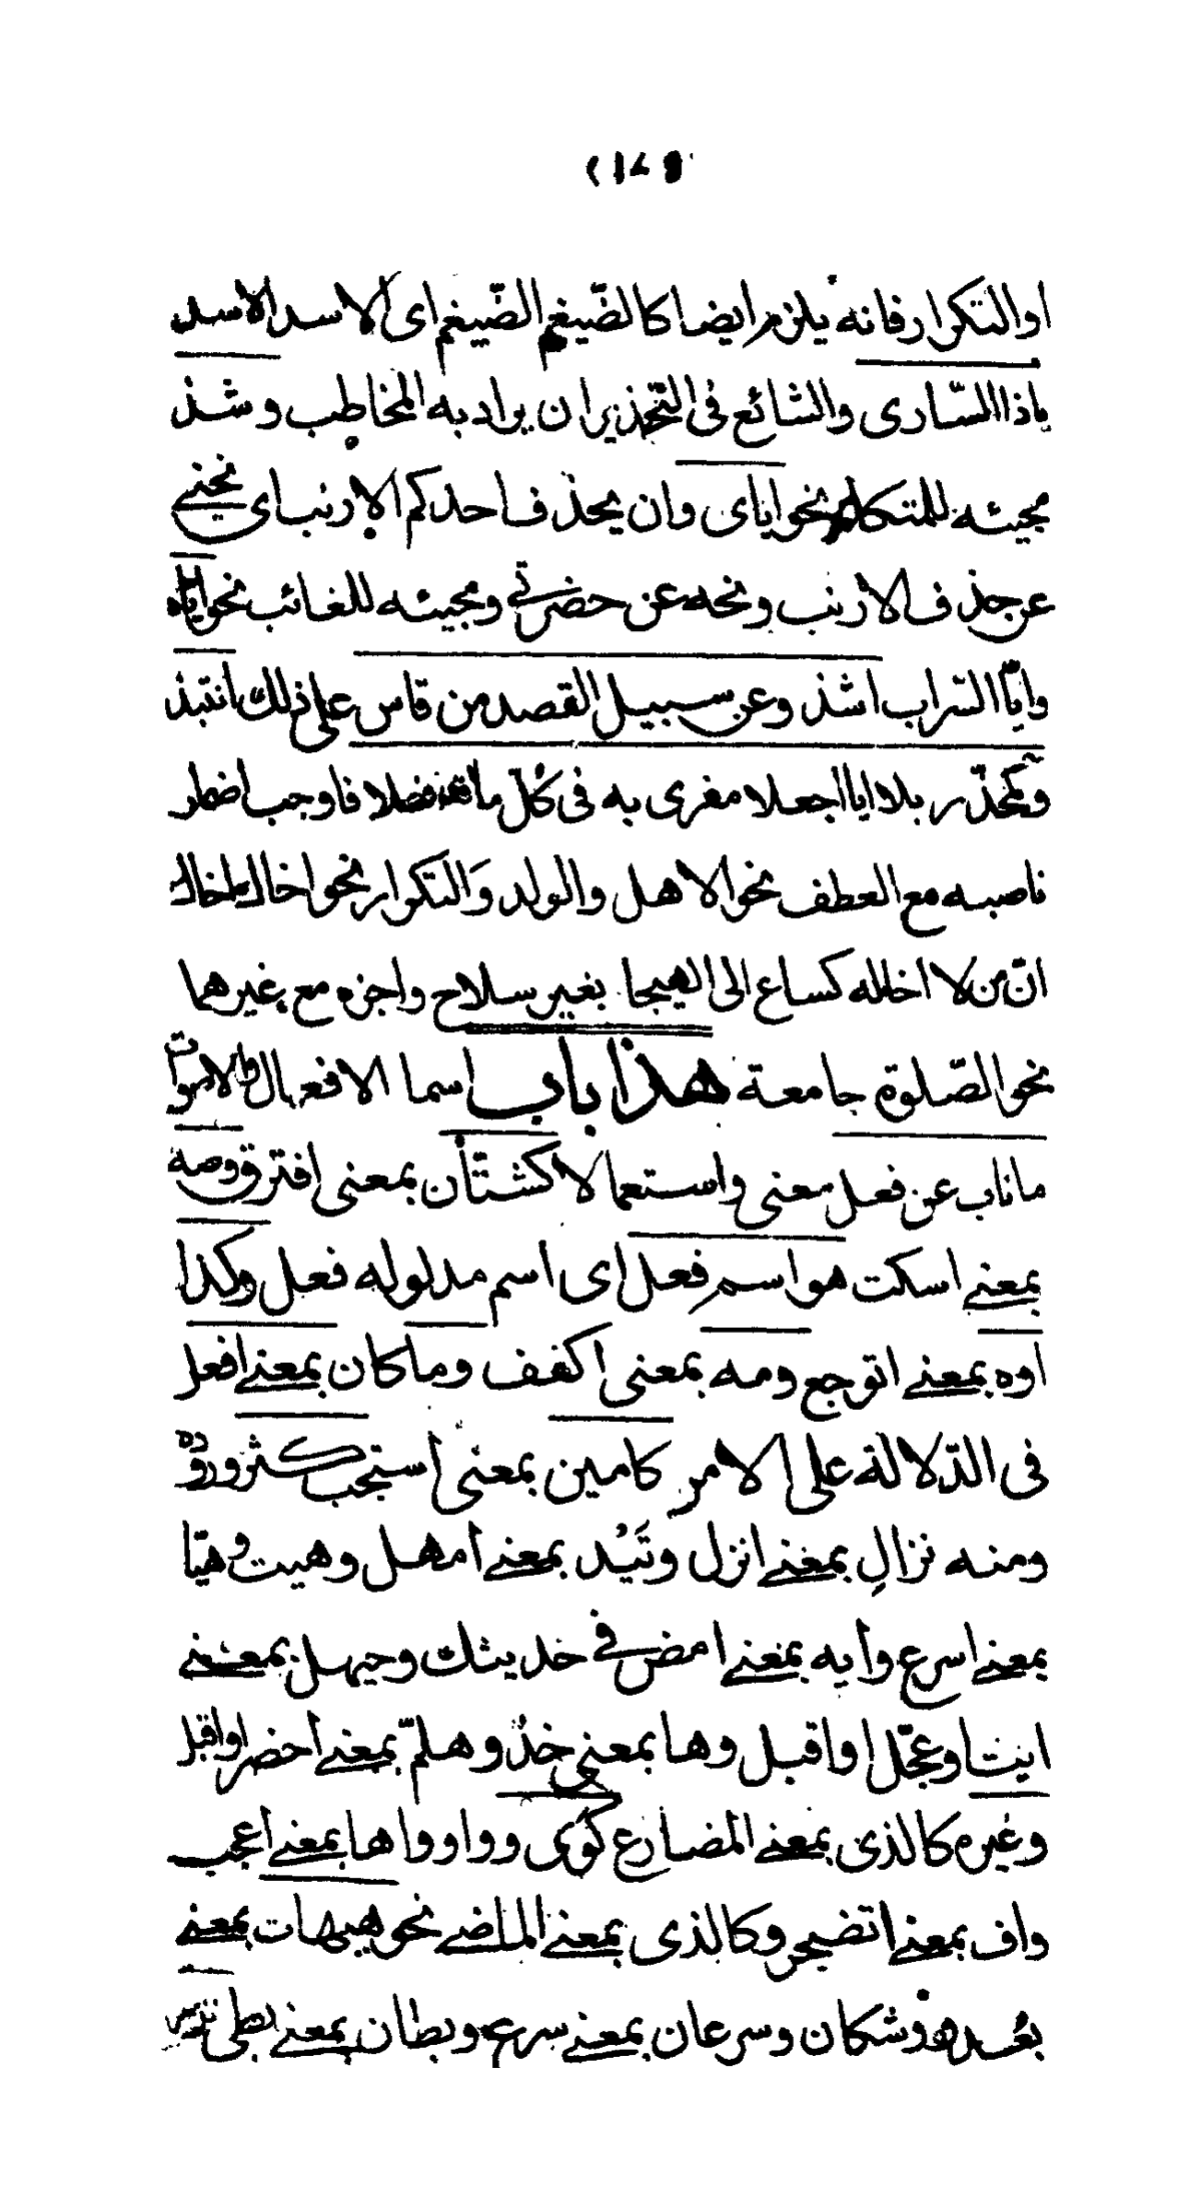 او التكرار فانه يلزم ايضا كالضّيغم الضّيغم اى الاسد الاسد
ياذا السّارى والشائع فى التّحذير ان يراد به المخاطب وشذ
مجيئه للمتكلم نحو اياى وان يحذف احدكم الارنب اى نحنى
عن حذف الارنب ونحه عن حضرتى ومجيئه للغائب نحو اياه
وايّا التراب اشذ وعن سبيل القصد من قاس على ذلك انتبذ
وكمحذّر بلا ايا اجعلا مغرى به فى كلّ ما قد فضلا فاوجب اضمار
ناصبه مع العطف نحو الاهل والولد وَالتكرار نحو اخاك اخاك
انّ من لا اخاله كساع الى الهيجا بغير سلاح واجزه مع غيرهما
نحو الصّلوة جامعة هذا باب اسما الافعال والاصوات
ما ناب عن فعل معنى واستعمالا كشتّان بمعنى افترق وصه
بمعنى اسكت هو اسم فعل اى اسم مدلوله فعل وكذا
اوه بمعنى اتوجع ومه بمعنى اكفف وما كان بمعنى افعل
فى الدّلالة على الامر كامين بمعنى استجب كثر وروده
ومنه نزالِ بمعنى انزل وتَيْد بمعنى امهل وهيت وهيّا
بمعنى اسرع وايه بمعنى امض فى حديثك وحيهل بمعنى
ايت او عجّل او اقبل وها بمعنى خذ وهلمّ بمعنى احضر او اقبل
وغيره كالذى بمعنى المضارع كوى ووا وواها بمعنى اعجب
واف بمعنى اتضجر وكالذى بمعنى الماضى نحو هيهات بمعنى
بعُد ووشكان وسرعان بمعنى سرع وبطان بمعنى بطى